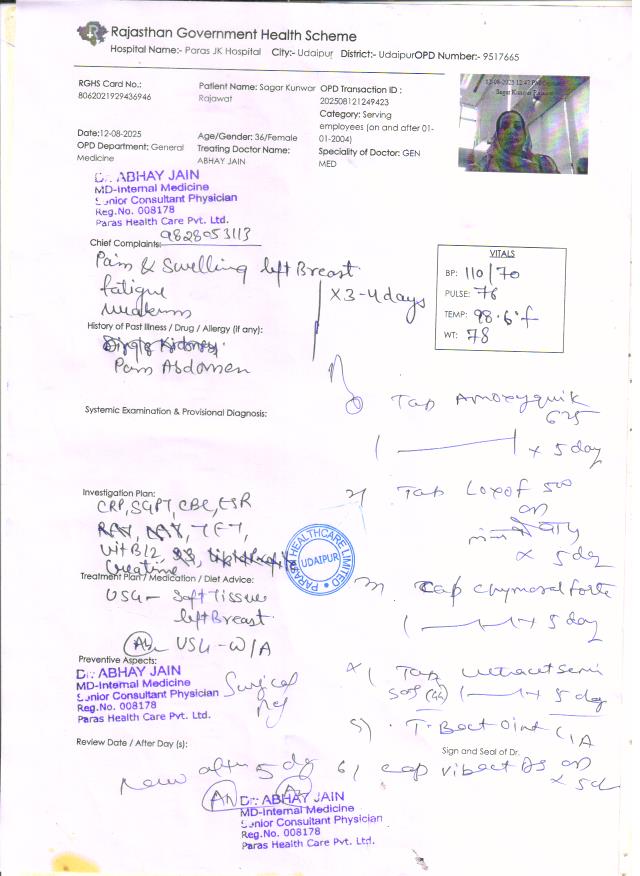 Rajasthan Government Health Scheme
Hospital Name:- Paras JK Hospital City:- Udaipur District:- Udaipur OPD Number:- 9517665
RGHS Card No.:
8062021929436946
Patient Name: Sagar Kunwar
Rajawat
OPD Transaction ID :
202508121249423
Category: Serving
employees (on and after 01-
01-2004)
Date:12-08-2025
OPD Department: General
Medicine
Age/Gender: 36/Female
Treating Doctor Name:
ABHAY JAIN
Speciality of Doctor: GEN
MED
Sagar Kunwar
Dr. ABHAY JAIN
MD-Internal Medicine
Senior Consultant Physician
Reg.No. 008178
Paras Health Care Pvt. Ltd.
9828053113
Chief Complaints:
Pain & Swelling left Breast
fatigue
weakness
x 3-4 days
VITALS
BP: 110/70
PULSE: 76
TEMP: 98.6°f
WT: 78
History of Past Illness / Drug / Allergy (if any):
Pain Abdomen
Systemic Examination & Provisional Diagnosis:
Tap Amoxyquik
625
x 5 day
Investigation Plan:
CRP, SGPT, CBC, ESR
Vit B12
Creatinine
Tap Loxof 500
OD
x 5 day
PARAS HEALTHCARE LIMITED
UDAIPUR
Treatment Plan / Medication / Diet Advice:
USG - Soft Tissue
left Breast
USG - W/A
Cap chymoral forte
x 5 day
Preventive Aspects:
Dr. ABHAY JAIN
MD-Internal Medicine
Senior Consultant Physician
Reg.No. 008178
Paras Health Care Pvt. Ltd.
Surgical
Ref
Tap ultracet semi
SOS
5 day
5) T-Bact Oint L/A
Review Date / After Day (s):
Sign and Seal of Dr.
Review after 5 day
6) cap vibact DS OD
x 5d
Dr. ABHAY JAIN
MD-Internal Medicine
Senior Consultant Physician
Reg.No. 008178
Paras Health Care Pvt. Ltd.